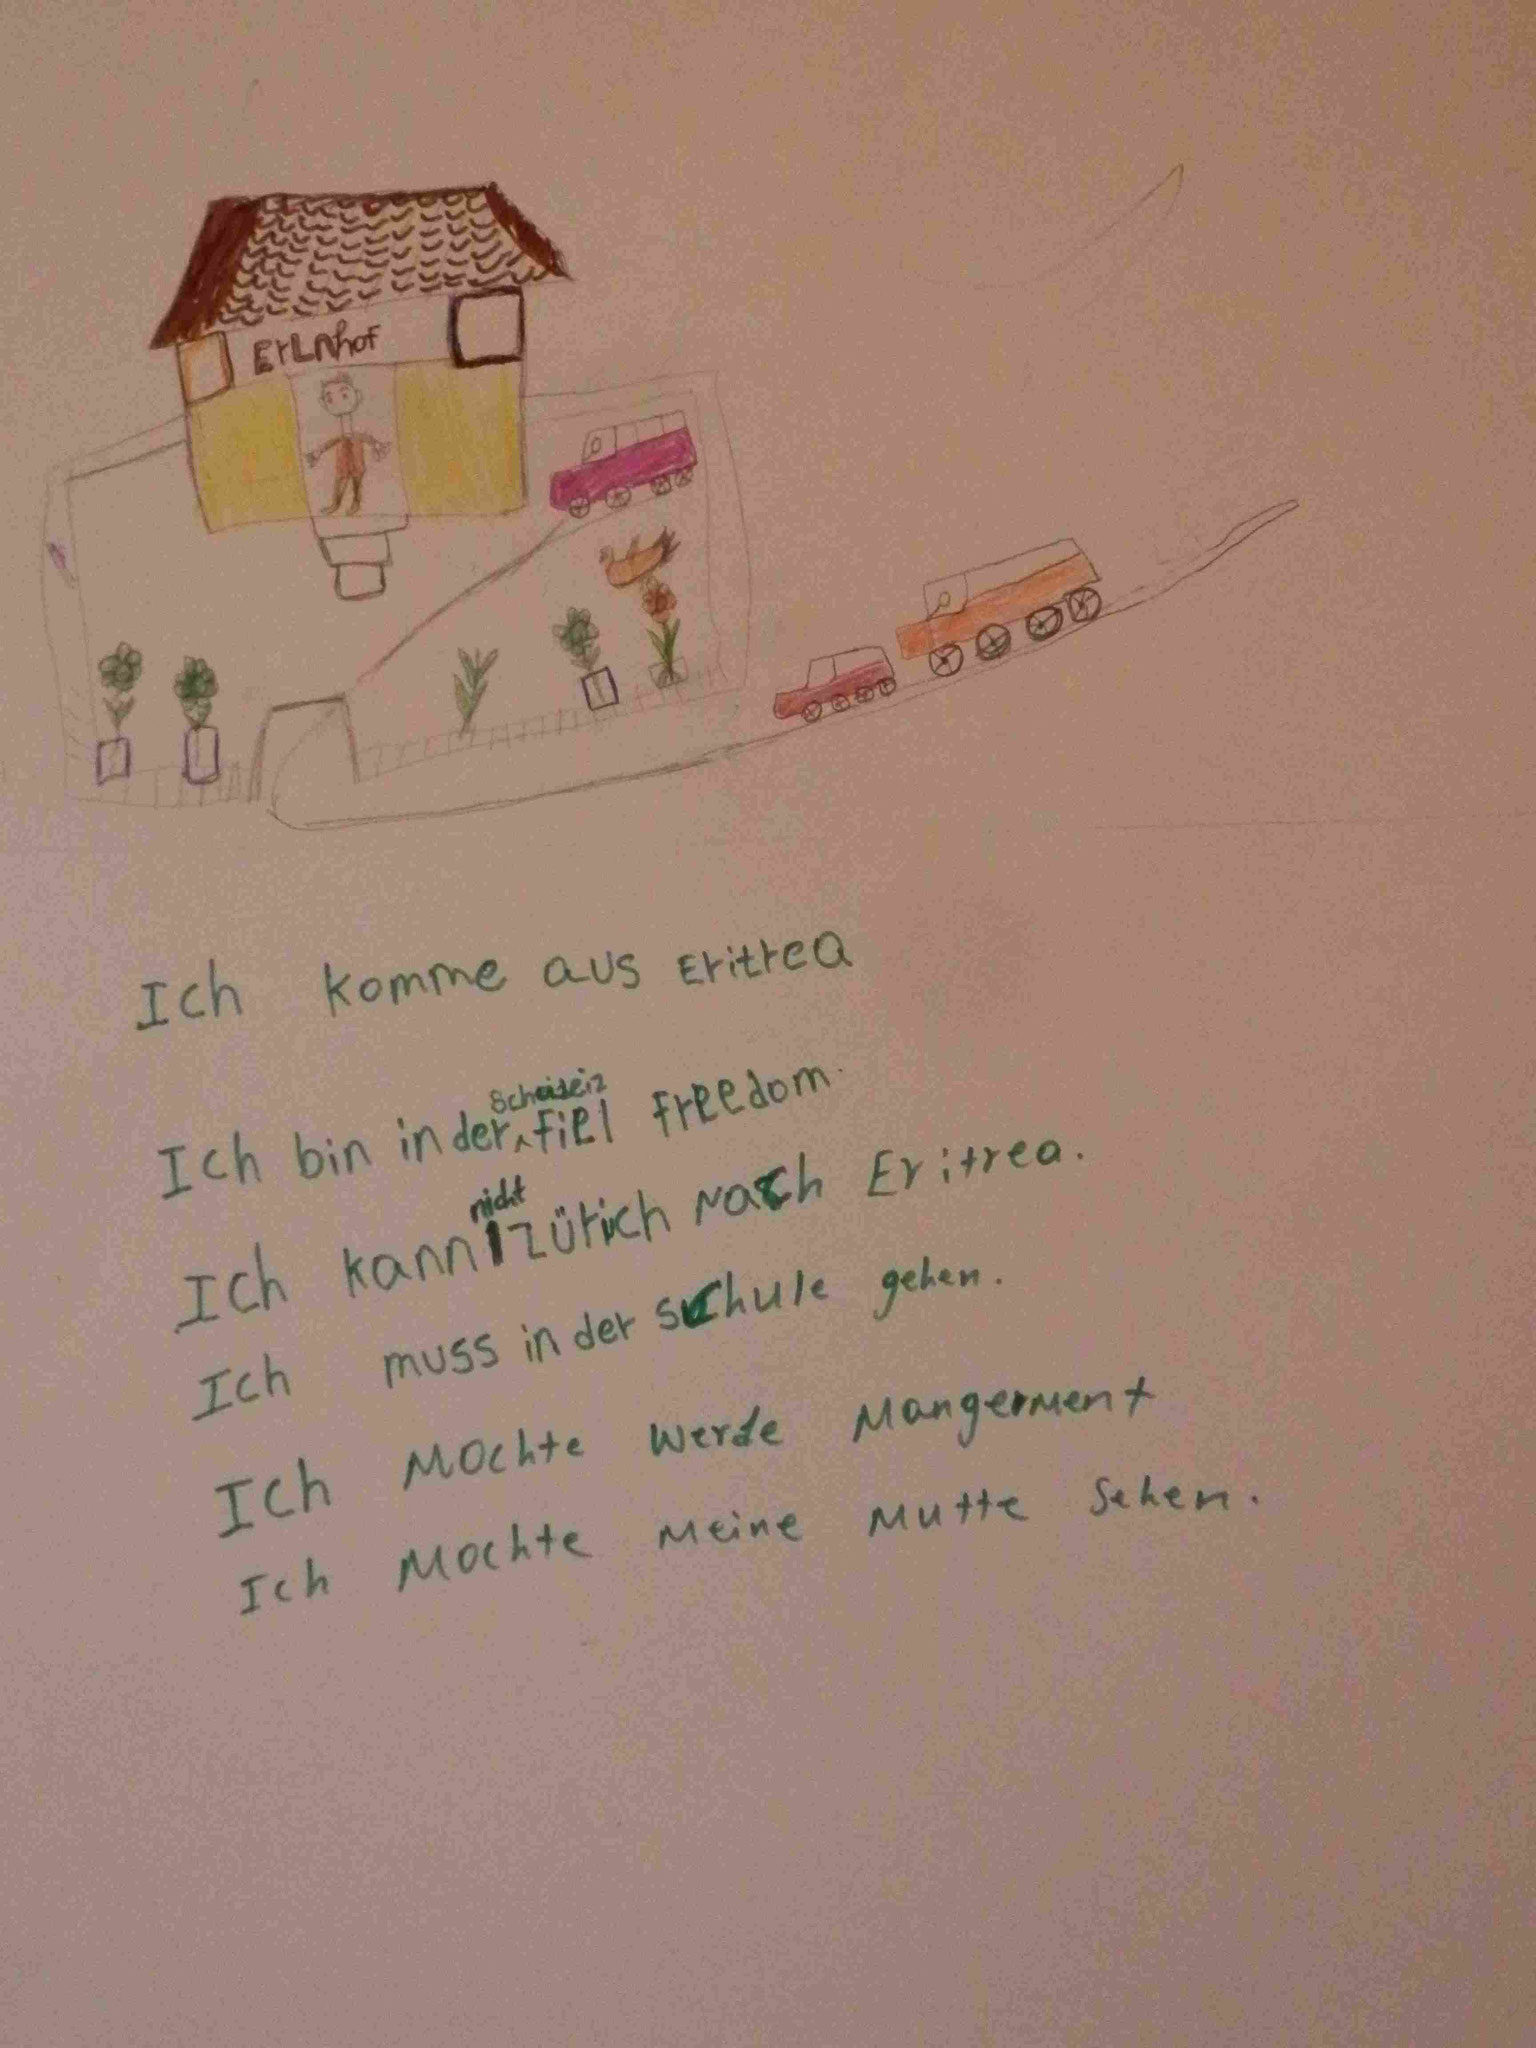 ErLnhof
Ich komme aus Eritrea
Ich bin in der Scheiseiz fiel freedom.
Ich kann nicht zürich nach Eritrea.
Ich muss in der schule gehen.
Ich Mochte werde Mangerment
Ich Mochte Meine Mutte Sehen.